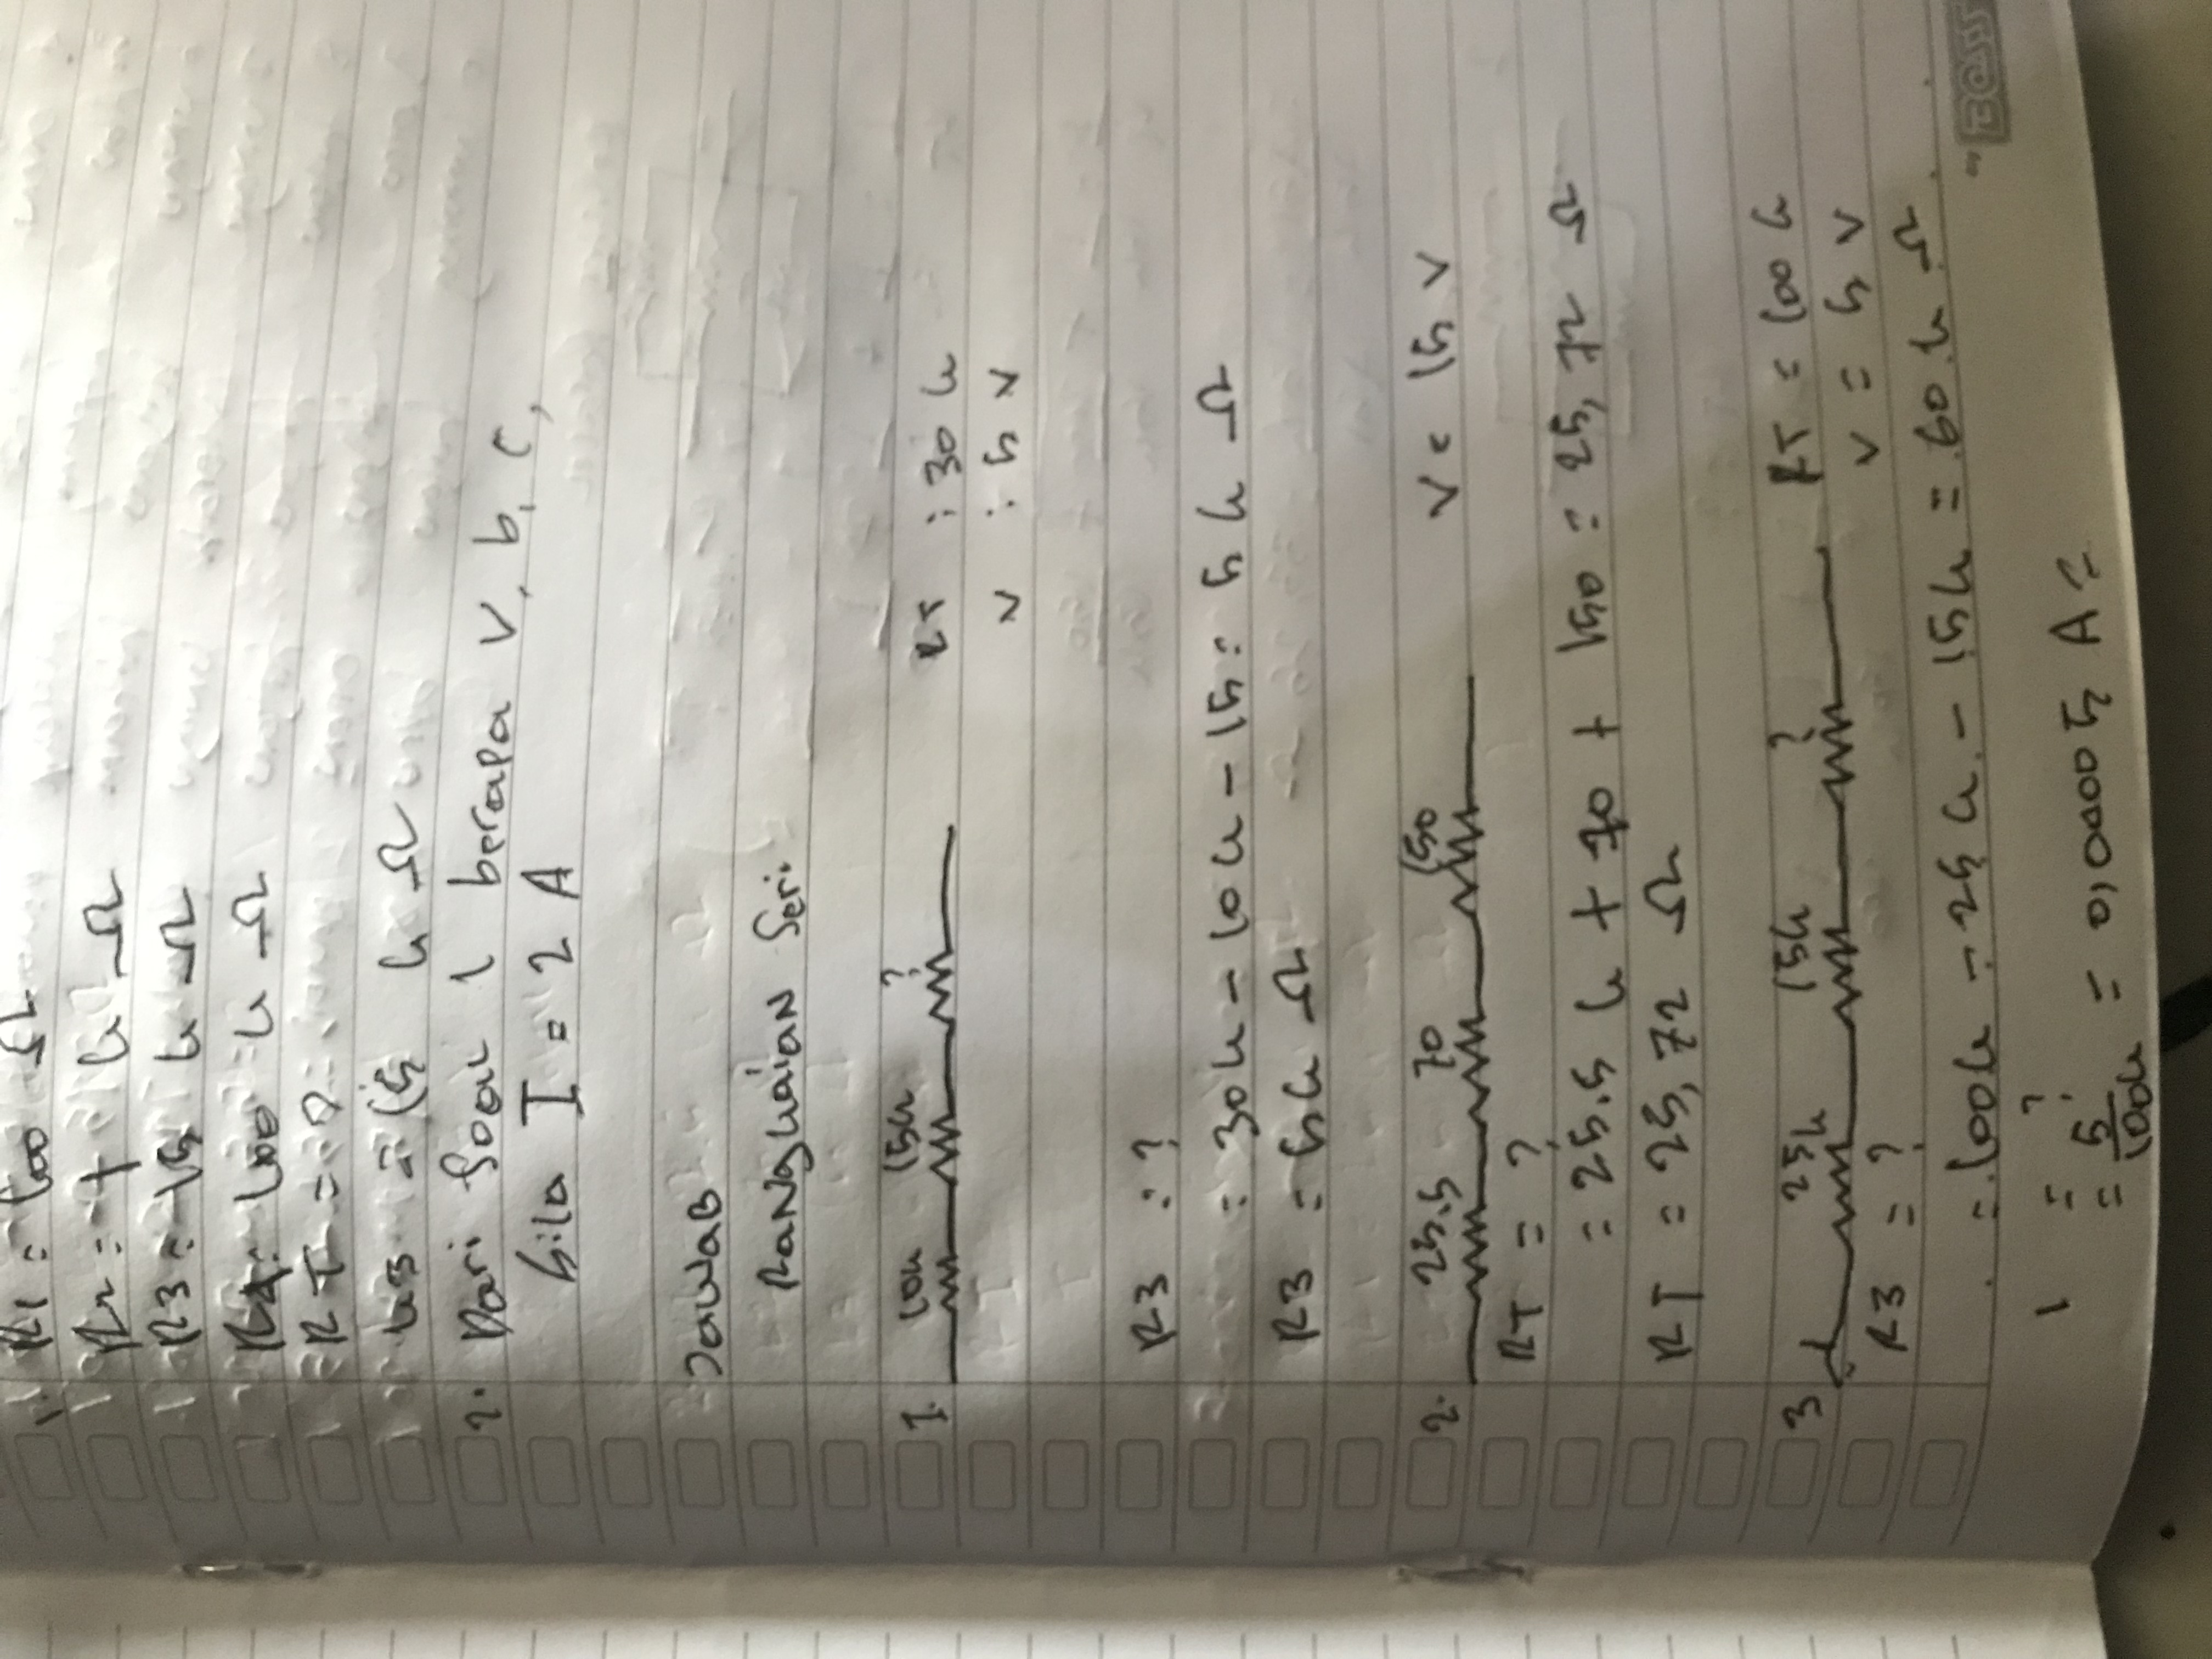 1. R1 = 100 Ω
R2 = 1 k Ω
R3 = 15 k Ω
R4 = 100 k Ω
RT = ?
= 15 k Ω
2. Dari Soal 1 berapa V, b, c,
bila I = 2 A
Jawab
Rangkaian Seri
1. 10k 15k ? RT : 30 k
V : 5 V
R3 : ?
= 30k - 10k - 15 = 5 k Ω
R3 = 5k Ω
2. 25.5 70 150 V = 15 V
RT = ?
= 25.5 k + 70 + 150 = 25,72 Ω
RT = 25,72 Ω
3 25k 15k ? RT = 100 k
R3 = ? V = 5 V
= 100k - 25k - 15k = 60 k Ω
I = ?
= 5/100k = 0,00005 A =
BOSS